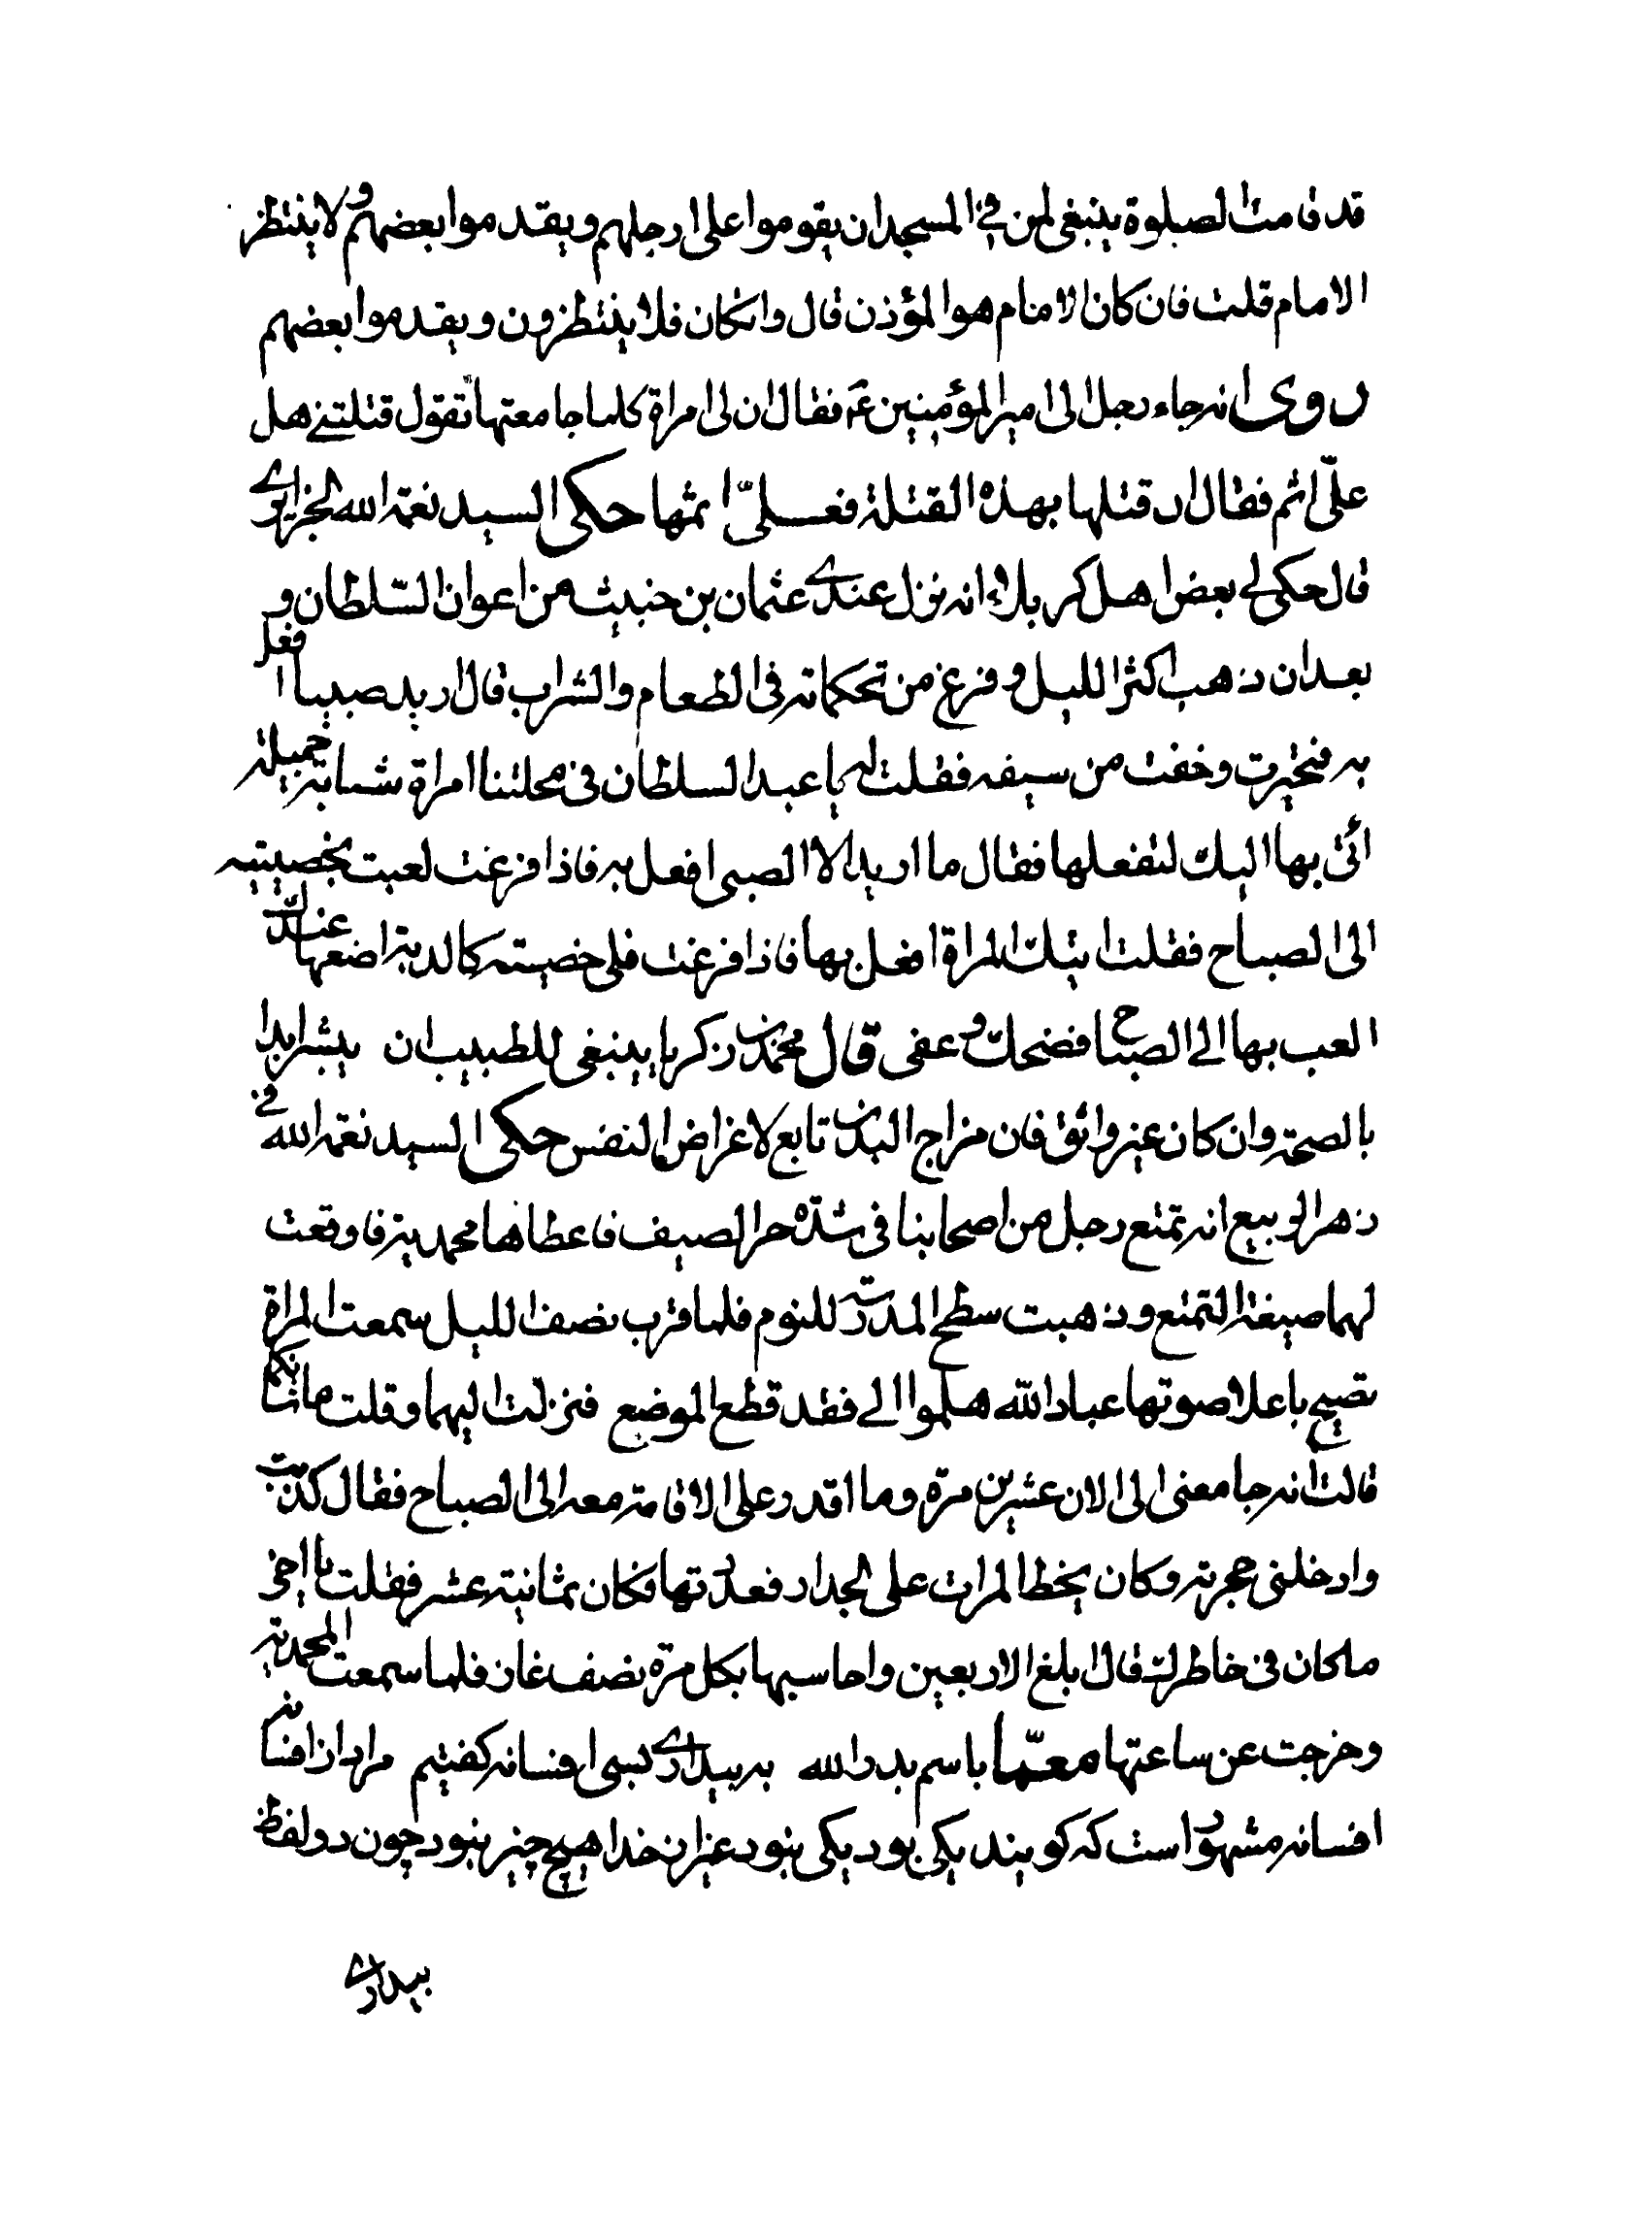 قد قامت الصلوة ينبغي لمن في المسجد ان يقوموا على ارجلهم ويقدموا بعضهم و لا ينتظر
الامام قلت فان كان الامام هو المؤذن قال وانكان فلا ينتظرون ويقدموا بعضهم
روى انه جاء رجل الى امير المؤمنين ع فقال ان لى امراة كلما جامعتها تقول قتلتنے هل
علىّ اثم فقال ار قتلها بهذه القتلة فعلىّ اثمها حكى السيد نعمة الله الجزايرے
قال حكى لے بعض اهل كربلاء انه نزل عندے عثمان بن خبيث من اعوان السّلطان و
بعد ان ذهب اكثر الليل و فرغ من تحكماته فى الطعام والشراب قال اريد صبيا افعل
به فتحيرت وخفت من سيفه فقلت له يا عبد السلطان فى محلتنا امراة شابة جميلة
اتى بها اليك لتفعلها فقال ما اريد الا الصبى افعل به فاذا فرغت لعبت بخصيتيه
الى الصباح فقلت ايتك المراة افعل بها فاذا فرغت فلى خصيته كالدبة اضعها عندك
العب بها الے الصباح فضحك و عفى قال محمد بن زكريا ينبغى للطبيب ان يبشر ابدا
بالصحة وان كان غير واثق فان مزاج البدن تابع لاغراض النفس حكى السيد نعمة الله فے
زهر الربيع انه تمتع رجل من اصحابنا فى شدة حر الصيف فاعطاها محمدية فاوقعت
لهما صيغة التمتع وذهبت سطح المدرسة للنوم فلما قرب نصف الليل سمعت المراة
تصيح باعلا صوتها عباد الله هلموا الے فقد قطع الموضع فنزلت اليهما وقلت ما شانكما
قالت انه جامعنى الى الان عشرين مرّة وما اقدر على الاقامة معه الى الصباح فقال كذبت
وادخلنى حجرته وكان يخط المرات على الجدار فعددتها فكان ثمانية عشر فقلت يا اخى
ما كان فى خاطرك قال ابلغ الاربعين واحاسبها بكل مرّة نصف غاز فلما سمعت المحمدية
وخرجت عن ساعتها معمّا باسم بدر الله به بيدارے بسى افسانه كفتيم مراد از افسانه
افسانه مشهور است كه كويند يكى بود يكى نبود غير از خدا هيچ چيز نبود چون دو لفظ
بيدارے